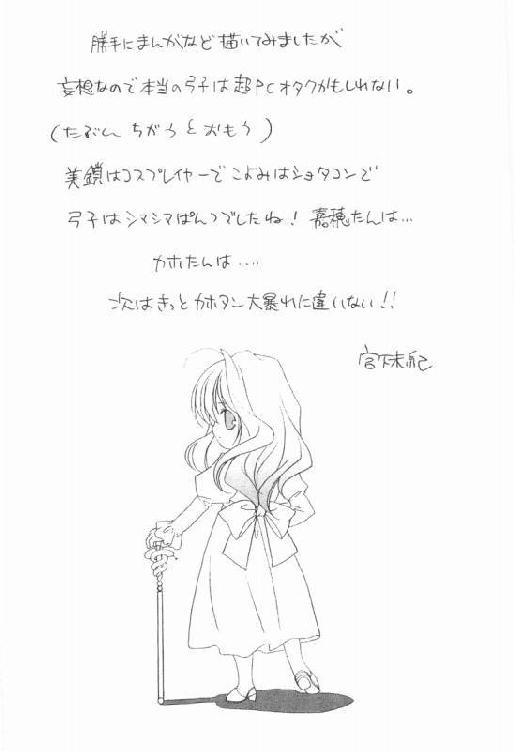 勝手にまんがなど描いてみましたが
妄想なので本当の弓子は超PCオタクかもしれない。
(たぶん ちがうとおもう)
美鎖はコスプレイヤーで こよみはショタコンで
弓子はシマシマぱんつでしたね! 嘉穂たんは…
カホたんは‥‥
次はきっとカホタン大暴れに違いない!!
宮下未紀